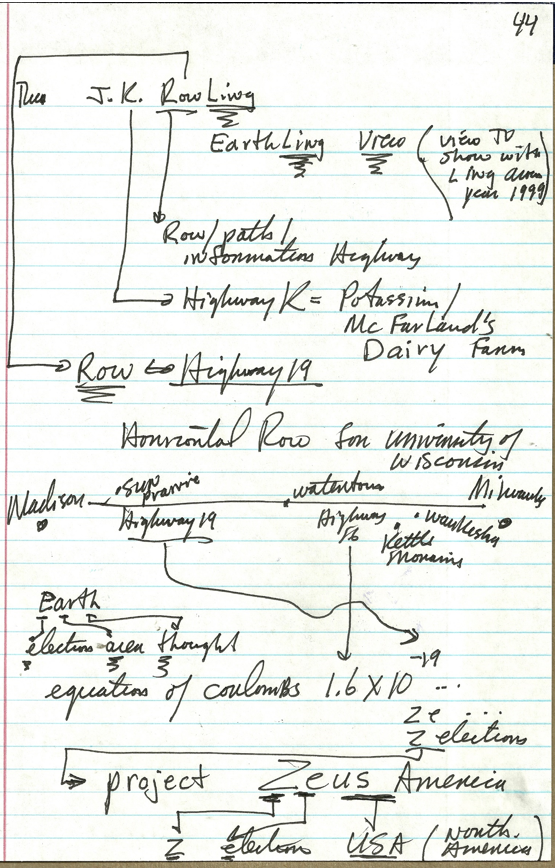 44
Then J.K. RowLing
EarthLing View (view TV
show with
Ling area
year 1999)
Row/paths/
information Highway
Highway K = Potassium/
McFarland's
Dairy Farm
Row ↔ Highway 19
Horizontal Row for University of
Wisconsin
Madison sun prairie watertown Milwaukee
Highway 19 Highway 16 Kettle Morains Waukesha
Earth
electrons area thought
-19
equation of coulombs 1.6 X 10 ...
Ze ...
Z electrons
project Zeus America
Z electrons USA (North
America)